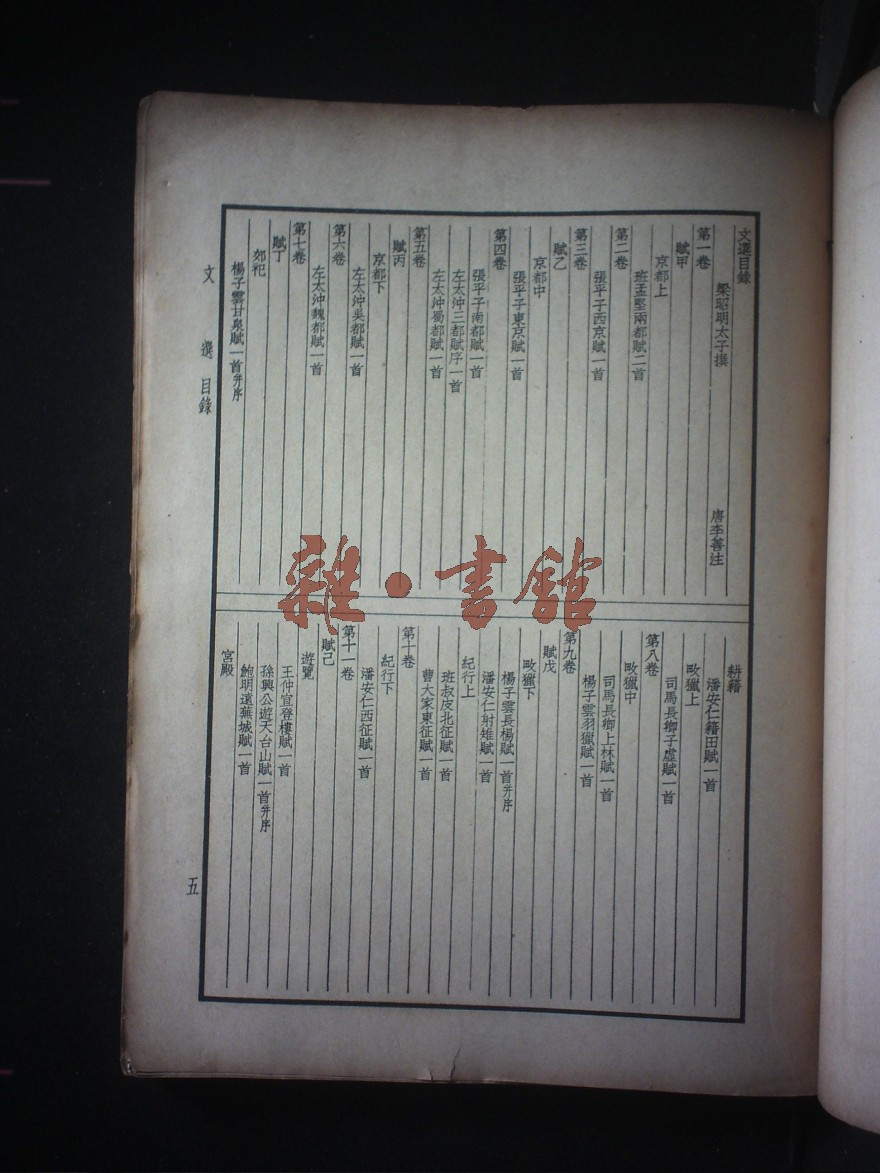 文選目錄
梁昭明太子撰 唐李善注
第一卷
賦甲
京都上
班孟堅兩都賦二首
第二卷
張平子西京賦一首
第三卷
賦乙
京都中
張平子東京賦一首
第四卷
張平子南都賦一首
左太沖三都賦序一首
左太沖蜀都賦一首
第五卷
賦丙
京都下
左太沖吳都賦一首
第六卷
左太沖魏都賦一首
第七卷
賦丁
郊祀
楊子雲甘泉賦一首并序
耕籍
潘安仁籍田賦一首
畋獵上
司馬長卿子虛賦一首
第八卷
畋獵中
司馬長卿上林賦一首
楊子雲羽獵賦一首
第九卷
賦戊
畋獵下
楊子雲長楊賦一首并序
潘安仁射雉賦一首
紀行上
班叔皮北征賦一首
曹大家東征賦一首
第十卷
紀行下
潘安仁西征賦一首
第十一卷
賦己
遊覽
王仲宣登樓賦一首
孫興公遊天台山賦一首并序
鮑明遠蕪城賦一首
宮殿
文選 目錄
五
雜·書館